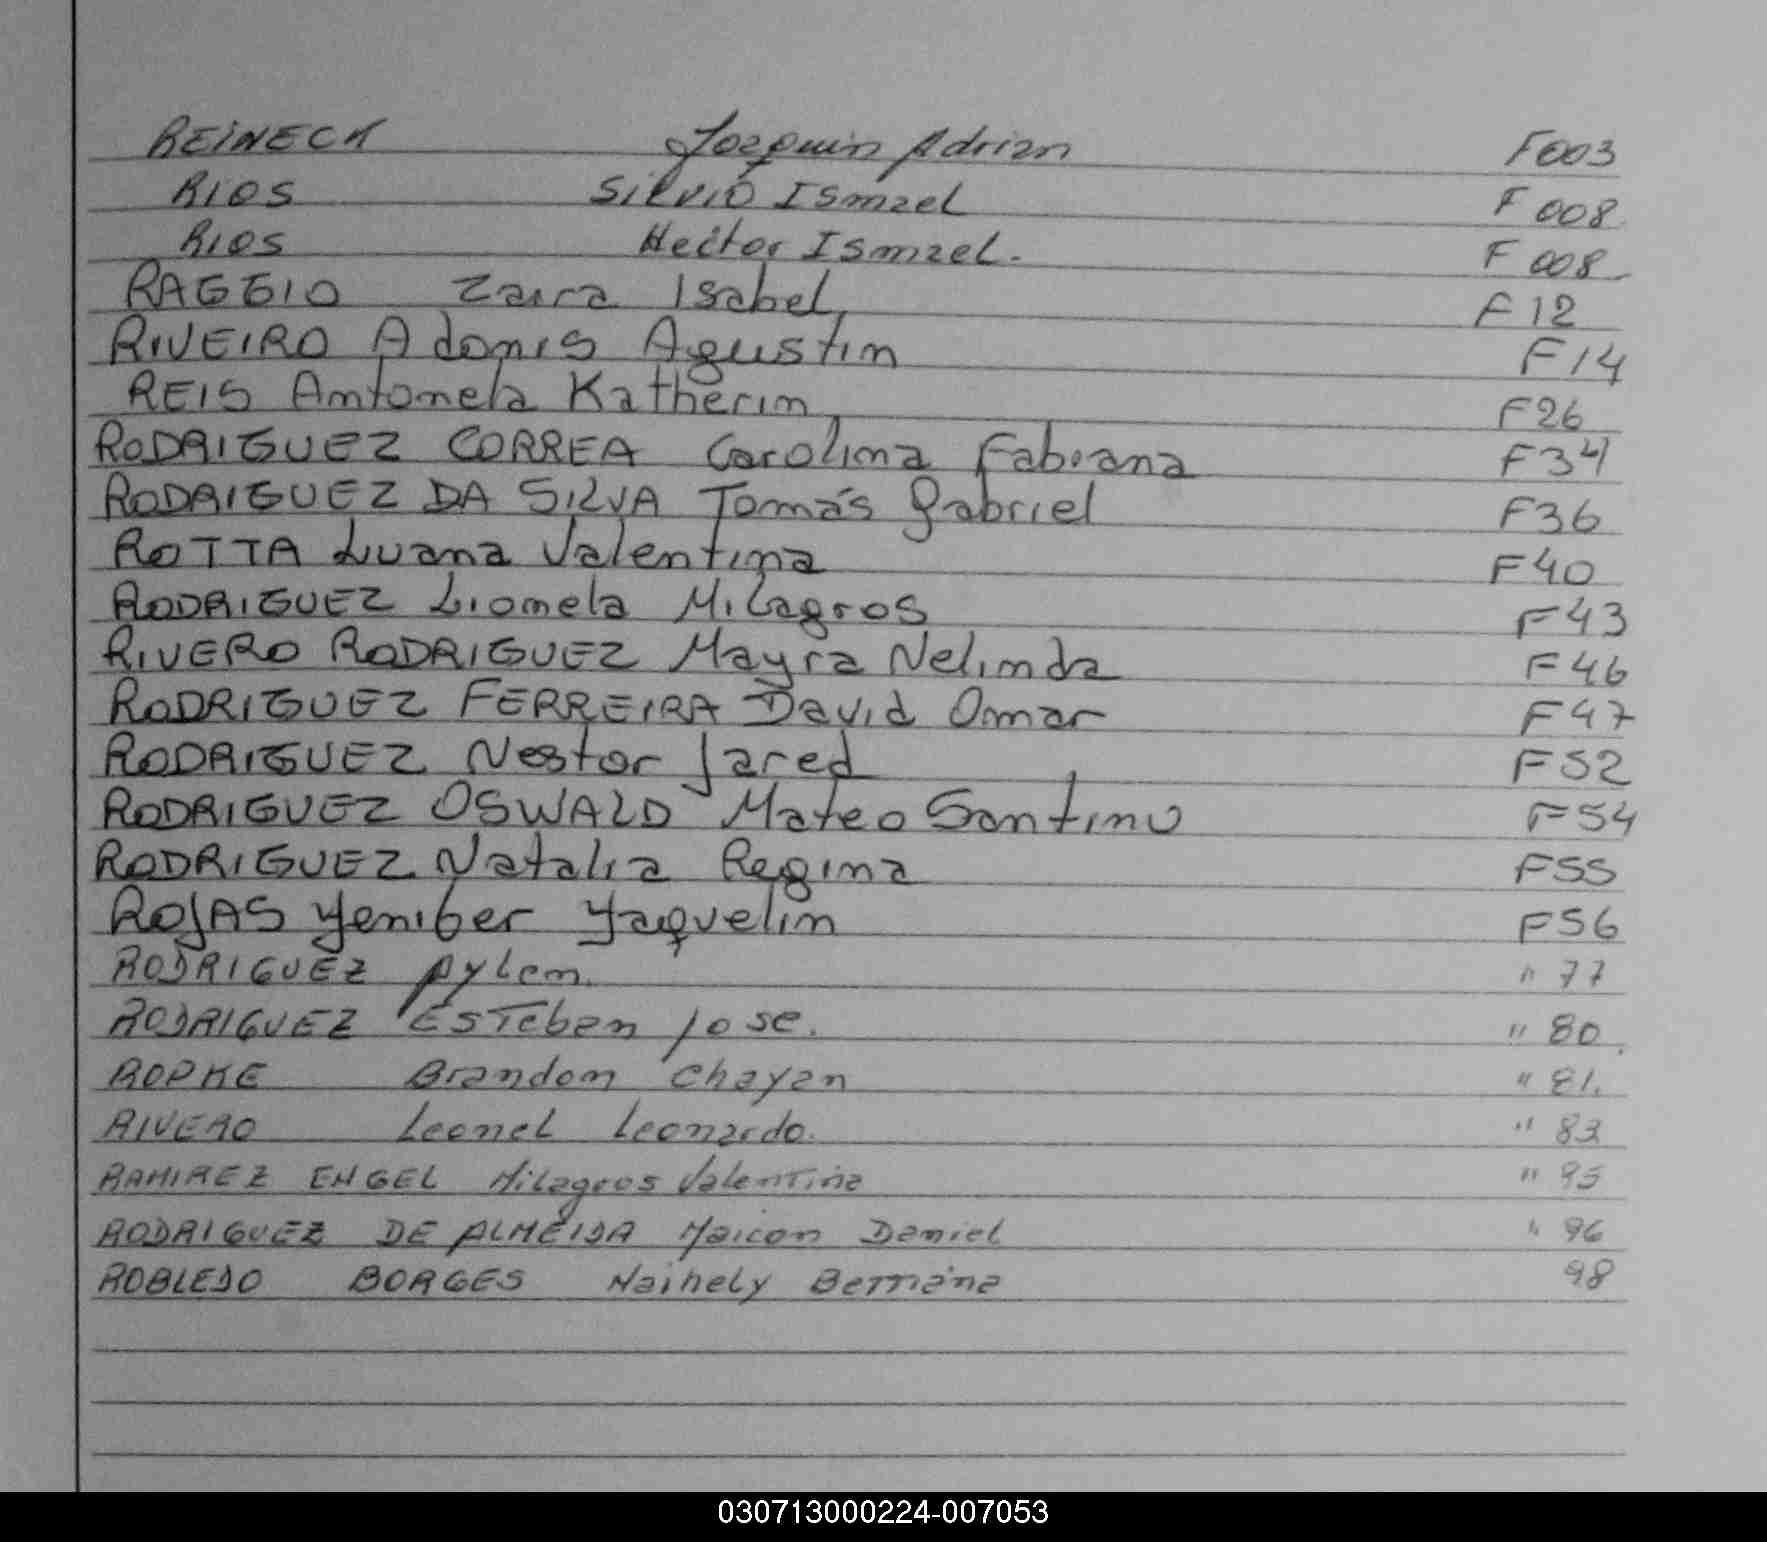 REINECK Joaquin Adrian F003
RIOS Silvio Ismael F 008
RIOS Hector Ismael. F 008
RAGGIO Zaira Isabel F 12
RIVEIRO Adonis Agustin F14
REIS Antonela Katherin F26
RODRIGUEZ CORREA Carolina Fabiana F34
RODRIGUEZ DA SILVA Tomás Gabriel F36
ROTTA Luana Valentina F40
RODRIGUEZ Lionela Milagros F43
RIVERO RODRIGUEZ Mayra Nelinda F46
RODRIGUEZ FERREIRA David Omar F47
RODRIGUEZ Nestor Jared F52
RODRIGUEZ OSWALD Mateo Santino F54
RODRIGUEZ Natalia Regina F55
ROJAS Yeniber Yaquelin F56
RODRIGUEZ Aylen. " 77
RODRIGUEZ Esteban Jose. " 80
ROPKE Brandom Chayan " 81.
RIVERO Leonel Leonardo. " 83
RAMIREZ ENGEL Milagros Valentina " 95
RODRIGUEZ DE ALMEIDA Maicon Daniel " 96
ROBLEDO BORGES Naihely 98
030713000224-007053